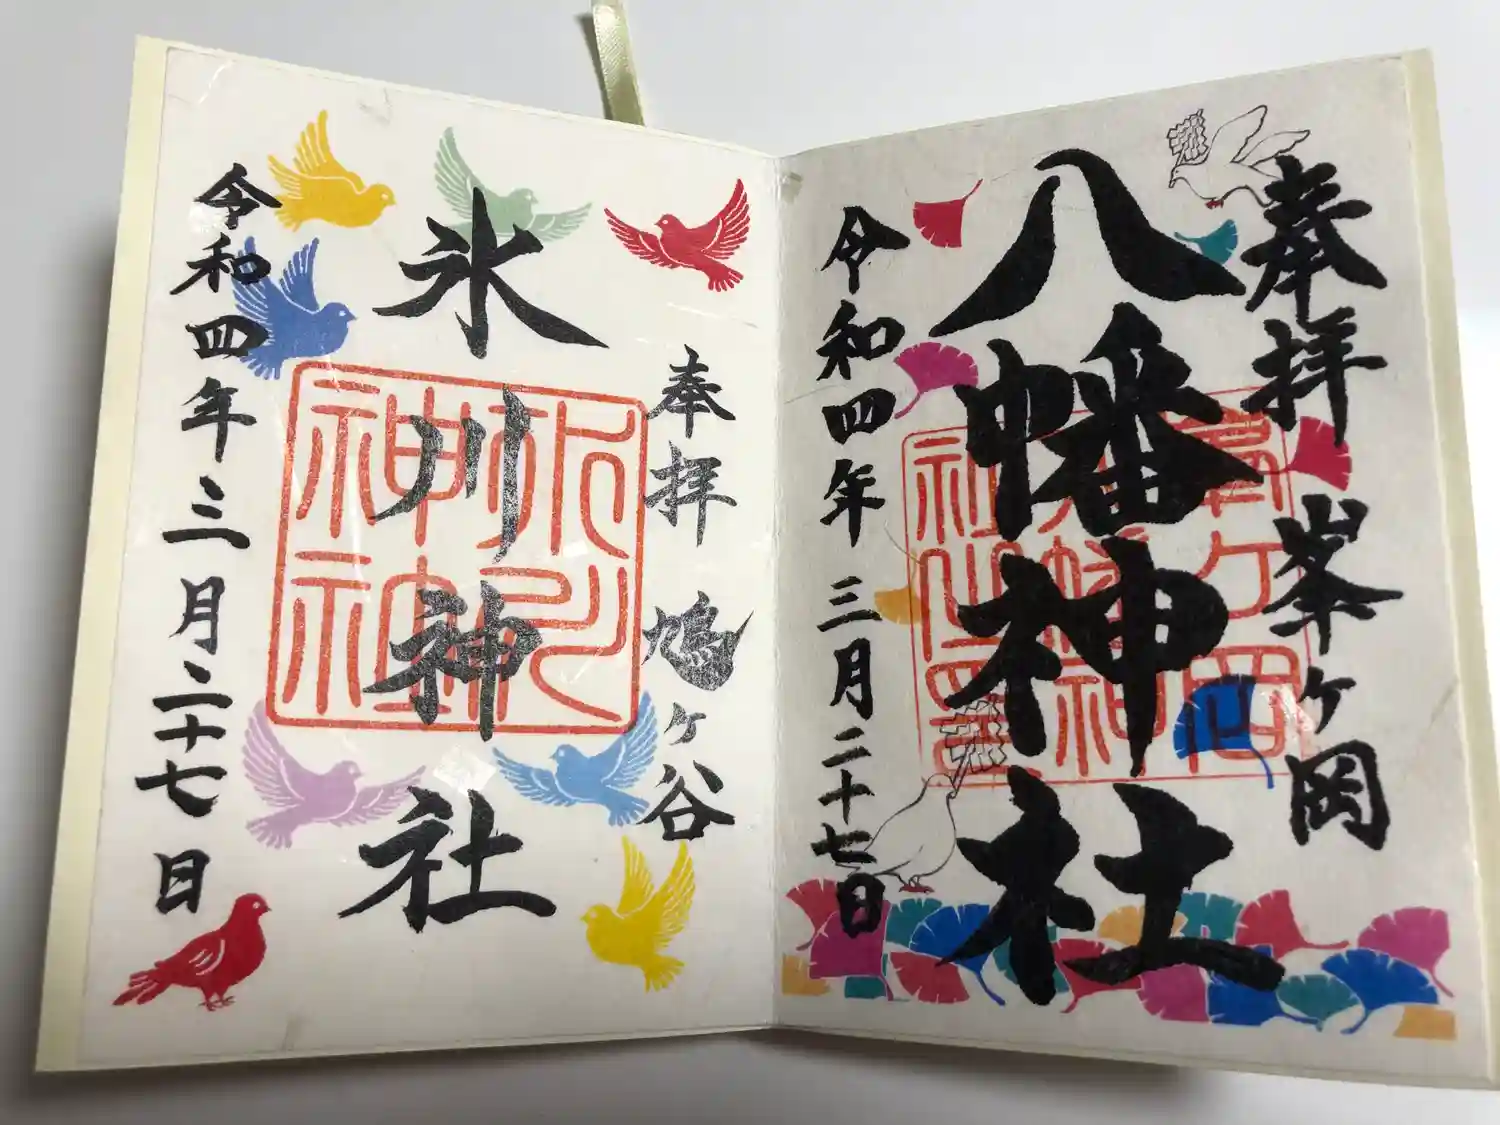 奉拝 峯ヶ岡
八幡神社
令和四年三月二十七日
奉拝 鳩ヶ谷
氷川神社
令和四年三月二十七日
氷川
神社